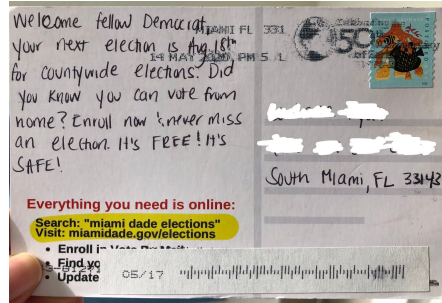 Welcome fellow Democrat,
your next election is Aug. 18th
for countywide elections. Did
you know you can vote from
home? Enroll now & never miss
an election. It's FREE! It's
SAFE!
MIAMI FL 331
14 MAY 2020 PM 5 L
Celebrating
50
South Miami, FL 33143
Everything you need is online:
Search: "miami dade elections"
Visit: miamidade.gov/elections
• Enroll in Vote By Mail
• Find yo
• Update
05/17